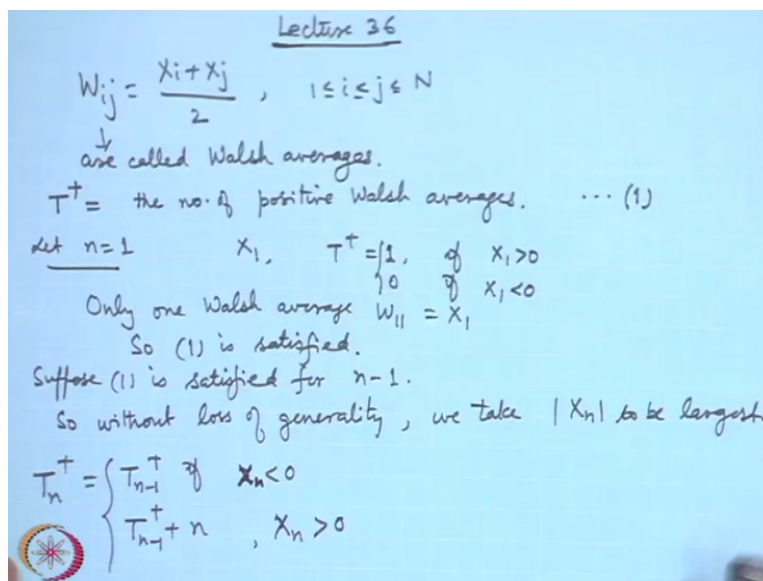 Lecture 36
Wij = (Xi + Xj)/2 , 1 ≤ i ≤ j ≤ N
↓
are called Walsh averages.
T⁺ = the no. of positive Walsh averages. ... (1)
Let n=1 X₁, T⁺ = { 1, if X₁>0
0 if X₁<0
Only one Walsh average W₁₁ = X₁
So (1) is satisfied.
Suppose (1) is satisfied for n-1.
So without loss of generality, we take |Xn| to be largest.
Tn⁺ = { Tn-1⁺ if Xn<0
Tn-1⁺ + n , Xn > 0